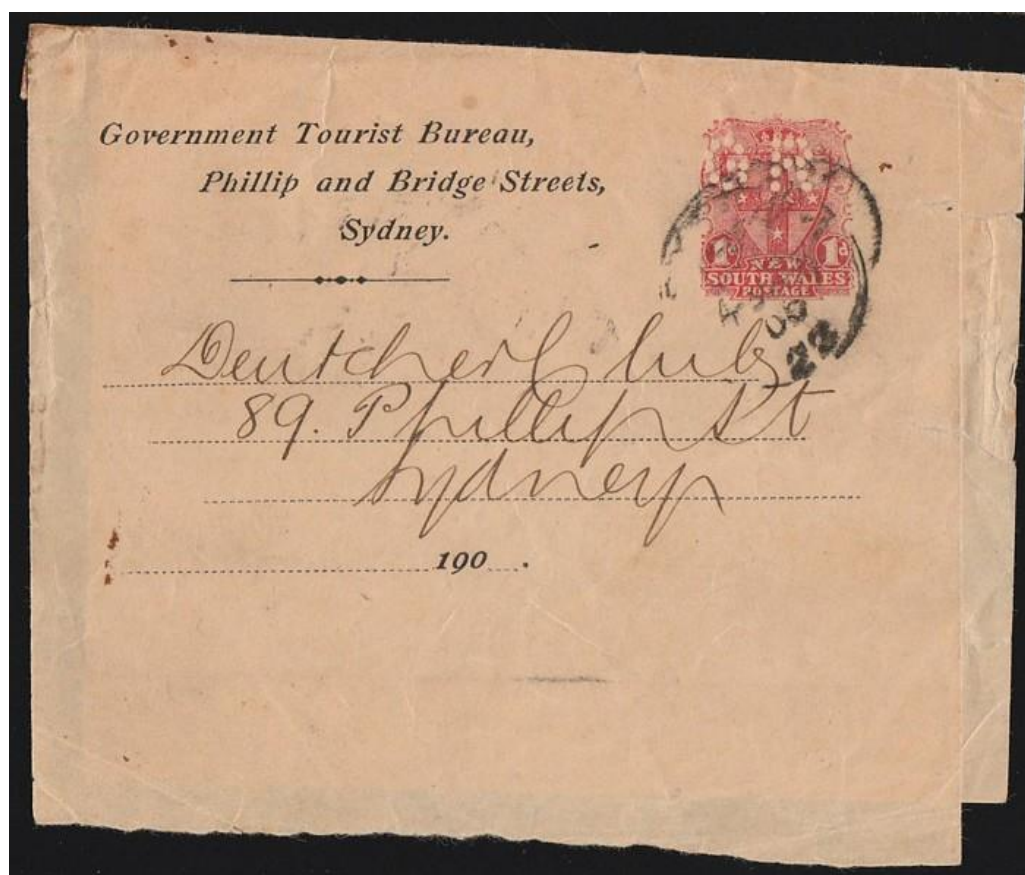 Government Tourist Bureau,
Phillip and Bridge Streets,
Sydney.
1d 1d
NEW
SOUTH WALES
POSTAGE
22
Deutcher Club
89. Phillip St
Sydney
190 .